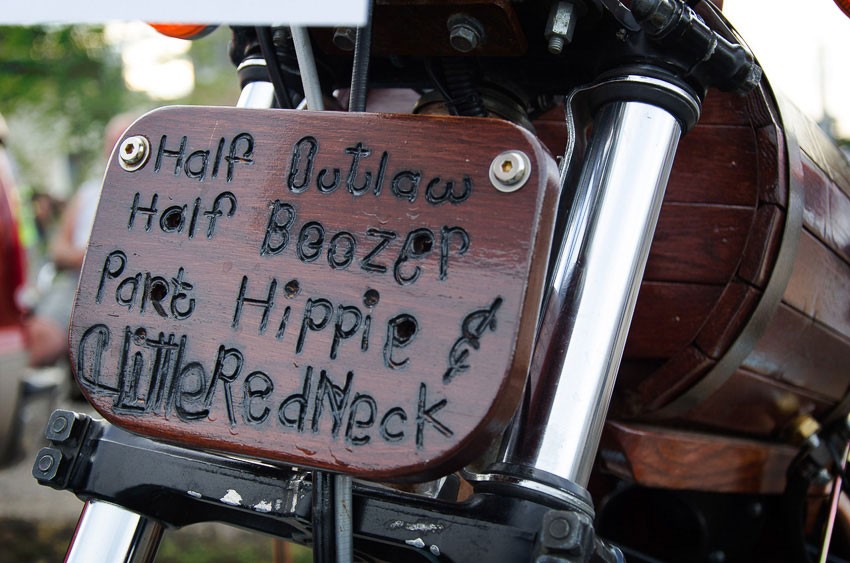 Half Outlaw
Half Boozer
Part Hippie &
A Little RedNeck